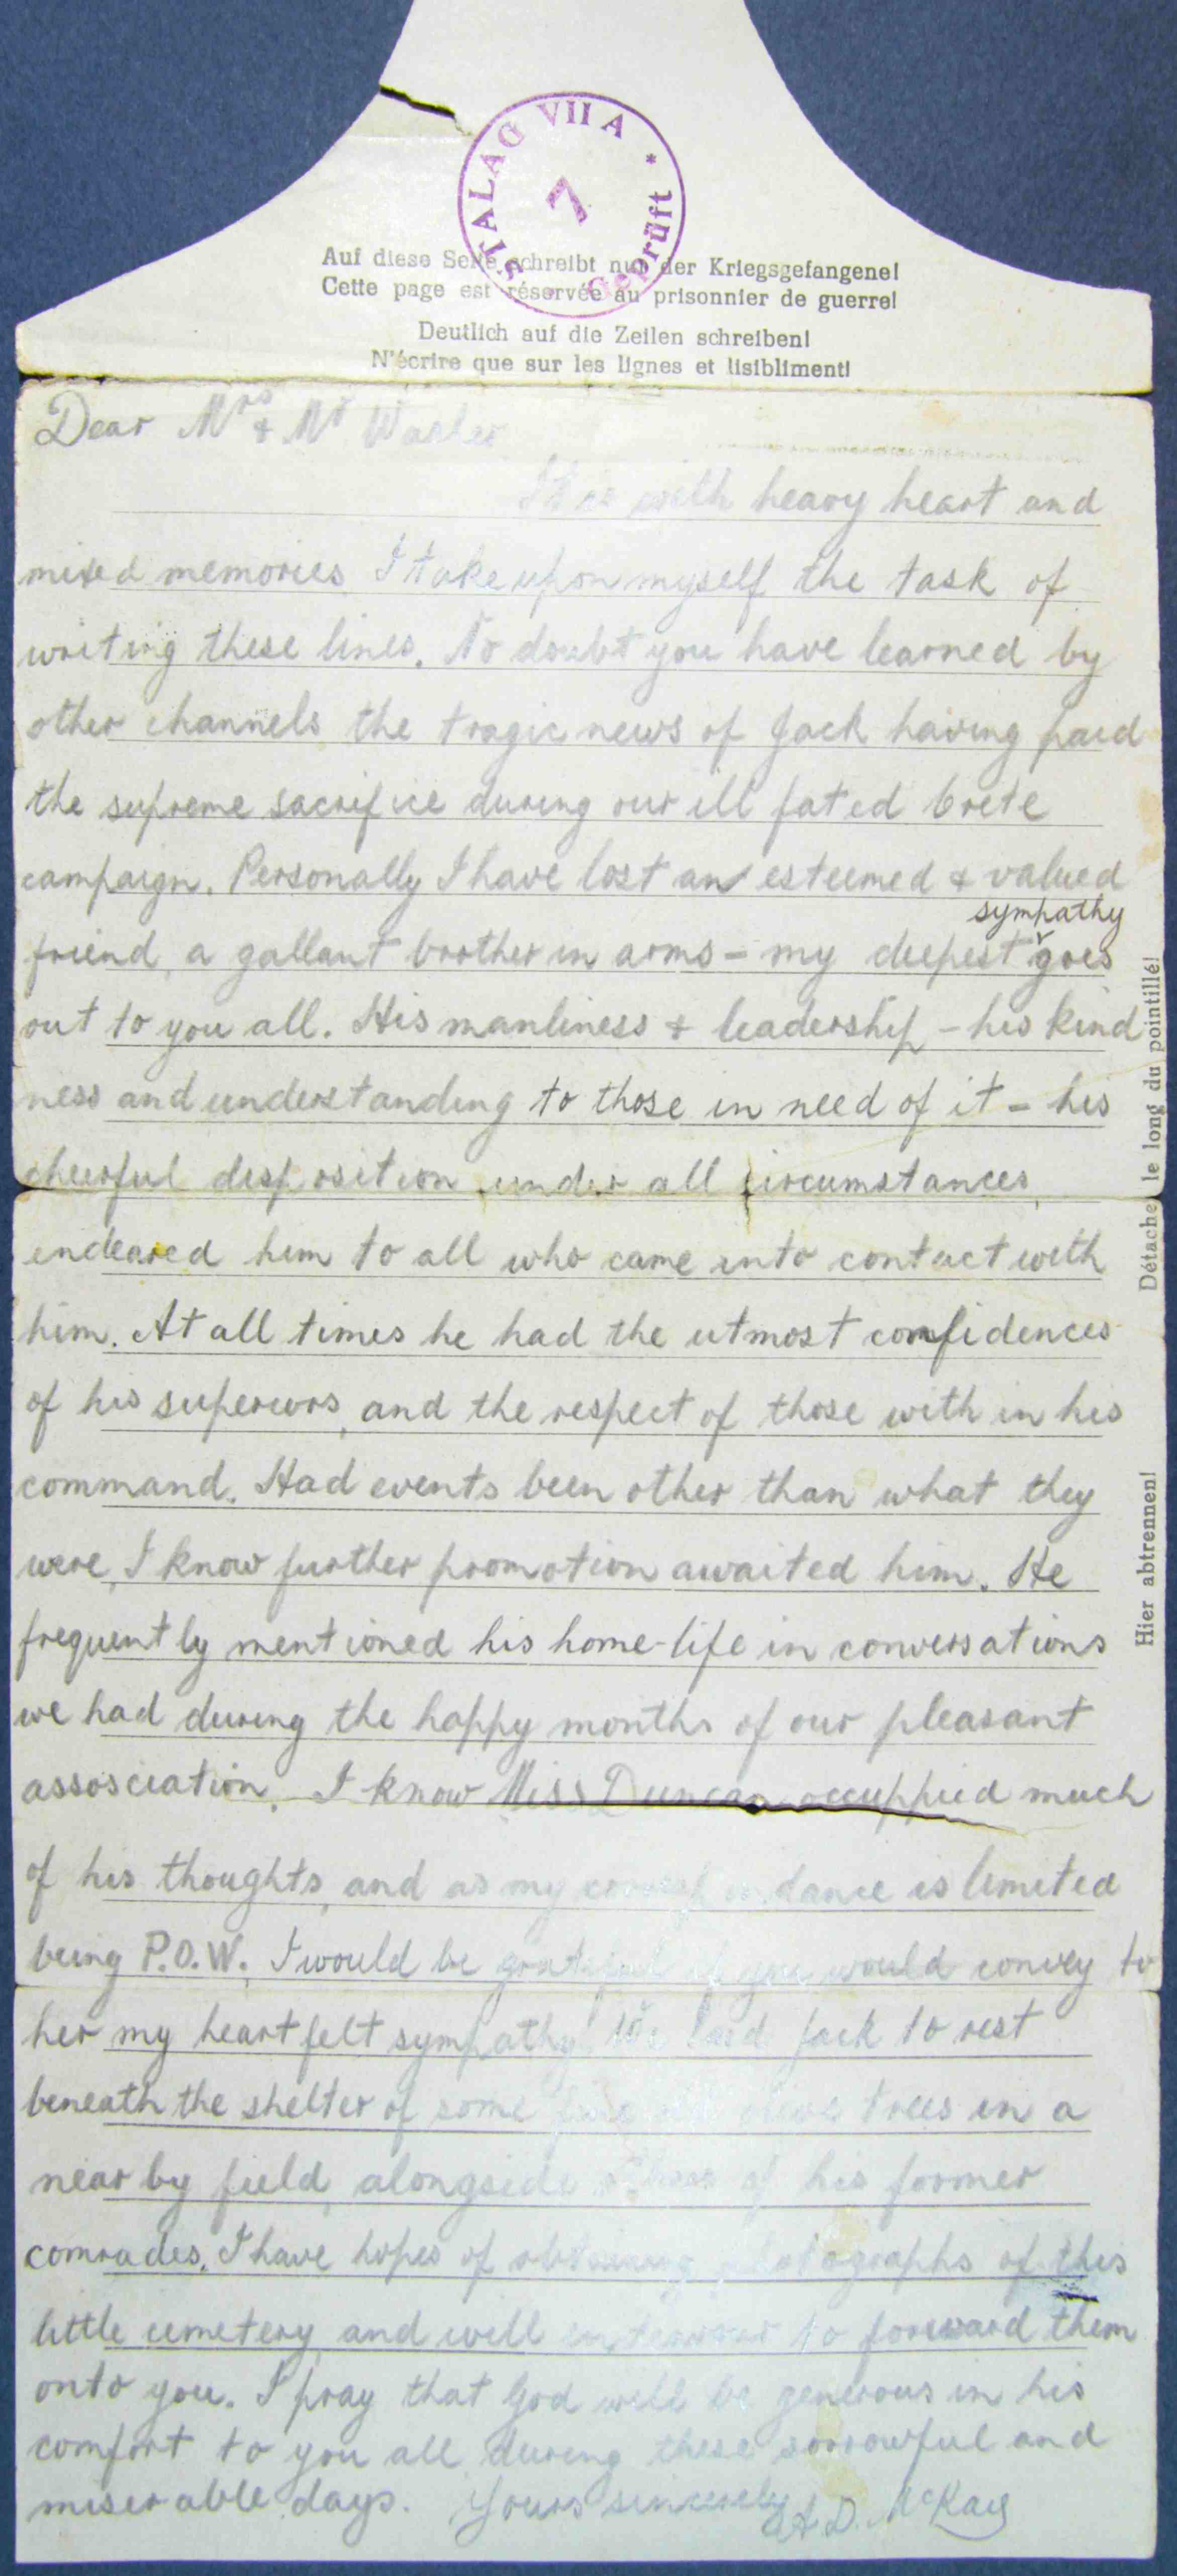 STALAG VII A *
7
Geprüft
Auf diese Seite schreibt nur der Kriegsgefangene!
Cette page est réservée au prisonnier de guerre!
Deutlich auf die Zeilen schreiben!
N'écrire que sur les lignes et lisibliment!
Dear Mrs & Mr
It is with heavy heart and
mixed memories I take upon myself the task of
writing these lines. No doubt you have learned by
other channels the tragic news of Jack having paid
the supreme sacrifice during our ill fated Crete
campaign. Personally I have lost an esteemed & valued
sympathy
friend, a gallant brother in arms - my deepest goes
out to you all. His manliness & leadership - his kind
ness and understanding to those in need of it - his
cheerful disposition under all circumstances,
endeared him to all who came into contact with
him. At all times he had the utmost confidences
of his superiors, and the respect of those with in his
command. Had events been other than what they
were, I know further promotion awaited him. He
frequently mentioned his home-life in conversations
we had during the happy months of our pleasant
assosciation. I know Miss Duncan occuppied much
of his thoughts, and as my correspondance is limited
being P.O.W. I would be grateful if you would convey to
her my heartfelt sympathy. We laid Jack to rest
beneath the shelter of some olive trees in a
near by field, alongside others of his former
comrades. I have hopes of obtaining photographs of this
little cemetery, and will endeavour to forward them
onto you. I pray that God will be generous in his
comfort to you all during these sorrowful and
miserable days. Yours sincerely
A. D. McKay
Détacher le long du pointillé!
Hier abtrennen!